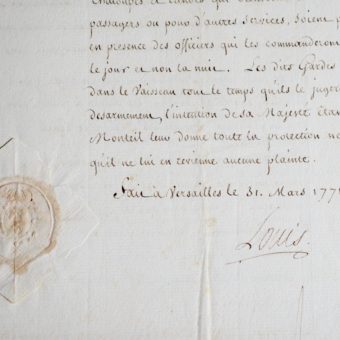 Chaloupes et canots qui
passagers ou pour d'autres services, soient
en presence des officiers qui les commanderon
le jour et non la nuit. Les dits Gardes
dans le Vaisseau tout le temps qu'ils le juger
desarmement, l'intention de sa Majesté éta
Monteil leur donne toute la protection ne
qu'il ne lui en revienne aucune plainte.
Fait à Versailles le 31. Mars 177
Louis